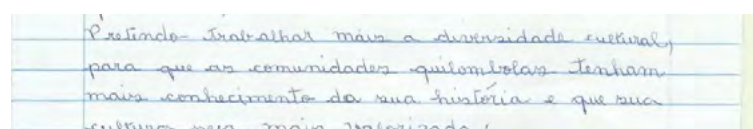 Pretindo trabalhar mais a diversidade cultural,
para que as comunidades quilombolas tenham
mais conhecimento da sua história e que sua
cultura seja mais valorizada.